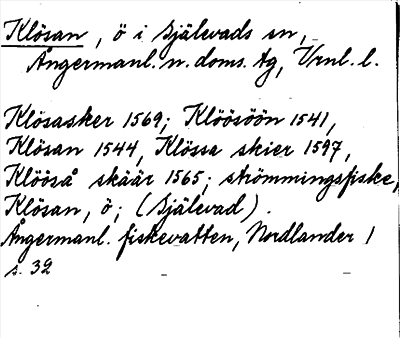 Klösan, ö i Själevads sn,
Ångermanl. n. doms. tg, Vrnl. l.
Klösasker 1569; Klöösöön 1541,
Klösan 1544, Klössa skier 1597,
Klööså skäär 1565; strömmingsfiske,
Klösan, ö; (Själevad).
Ångermanl. fiskevatten, Nordlander 1
s. 32